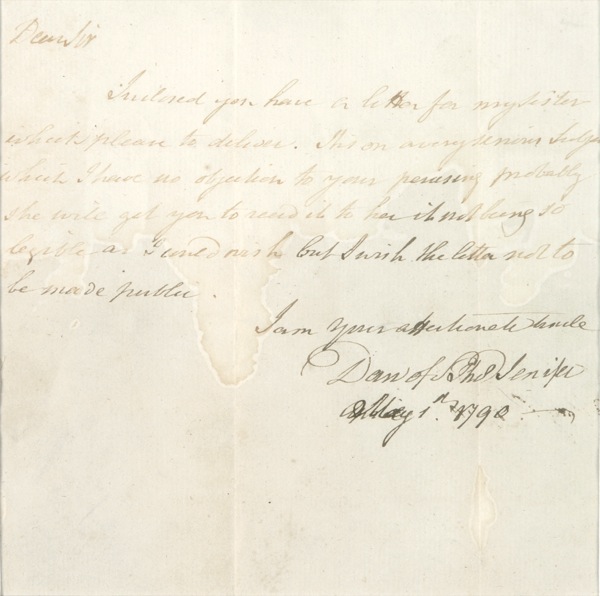 Dear Sir
Inclosed you have a letter for my sister
which please to deliver. Its on a very serious Subject
which I have no objection to your perusing probably
she will get you to read it to her it not being so
legible as I could wish but I wish the letter not to
be made public.
I am Your affectionate Uncle
Dan of St Thos Jenifer
May 1st 1790